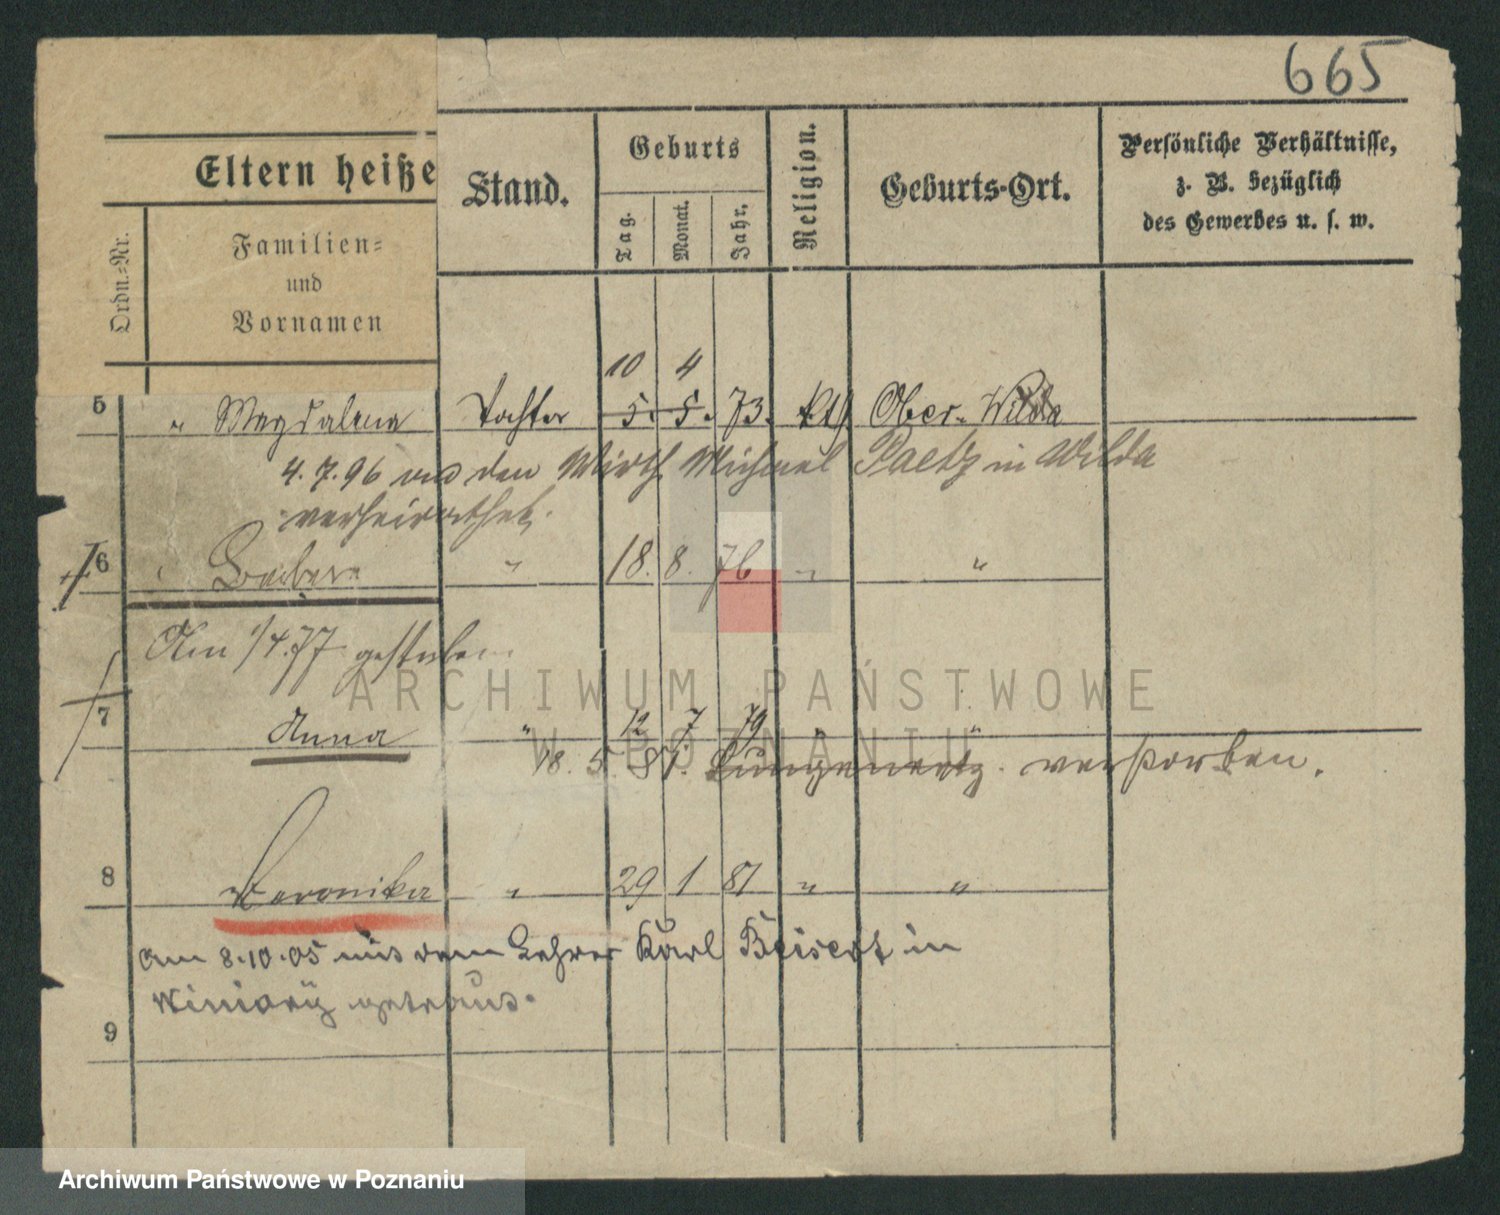 665
Eltern heiße
Ordn.-Nr.
Familien-
und
Vornamen
Stand.
Geburts
Tag.
Monat.
Jahr.
Religion.
Geburts-Ort.
Persönliche Verhältnisse,
z. B. bezüglich
des Gewerbes u. s. w.
10 4
5 " Magdalena Tochter 5. 5. 73. kth Ober-Wilda
4.7.96 den Wirth Michael Paetz in Wilda
verheirathet.
6 " Barbara " 18. 8. 76 " "
Am 1/4.77 gestorben
7 Anna " 12 7 79 "
18. 5. 81. verstorben.
8 Veronika " 29 1 81 " "
am 8.10.05 mit dem Lehrer Karl Beisert in
Winiary getraut.
9
ARCHIWUM PAŃSTWOWE
W POZNANIU
Archiwum Państwowe w Poznaniu